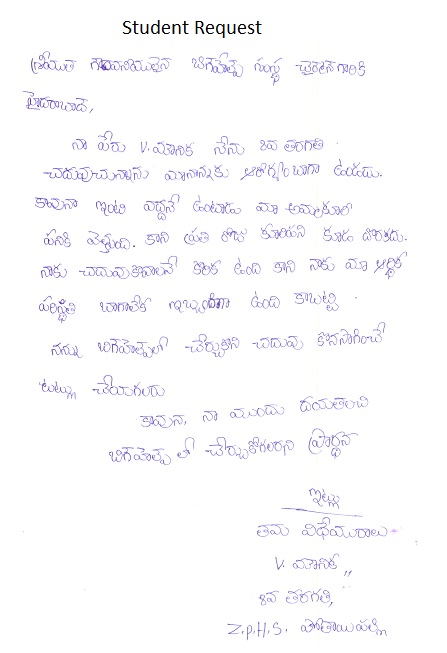 Student Request
శ్రీయుత గౌరవనీయులైన బిగ్‌హెల్ప్ సంస్థ చైర్మన్‌గారికి
హైదరాబాద్,
నా పేరు V. మౌనిక నేను 8వ తరగతి
చదువుచున్నాను మానాన్నకు ఆరోగ్యం బాగా ఉండదు.
కావున ఇంటి వద్దనే ఉంటాడు మా అమ్మకూలి
పనికి వెళ్తుంది. కాని ప్రతి రోజు కూలిపని కూడ దొరకదు.
నాకు చదువుకొవాలనే కోరిక ఉంది కాని నాకు మా ఆర్థిక
పరిస్థితి బాగాలేక ఇబ్బందిగా ఉంది కాబట్టి
నన్ను బిగ్‌హెల్ప్‌లో చేర్చుకొని చదువు కొనసాగించే
టట్లు చేయగలరు
కావున, నా ముందు దయతలచి
బిగ్‌హెల్ప్ లో చేర్చుకోగలరని ప్రార్థన
ఇట్లు
తమ విధేయురాలు
V. మౌనిక ,,
8వ తరగతి,
Z.P.H.S.